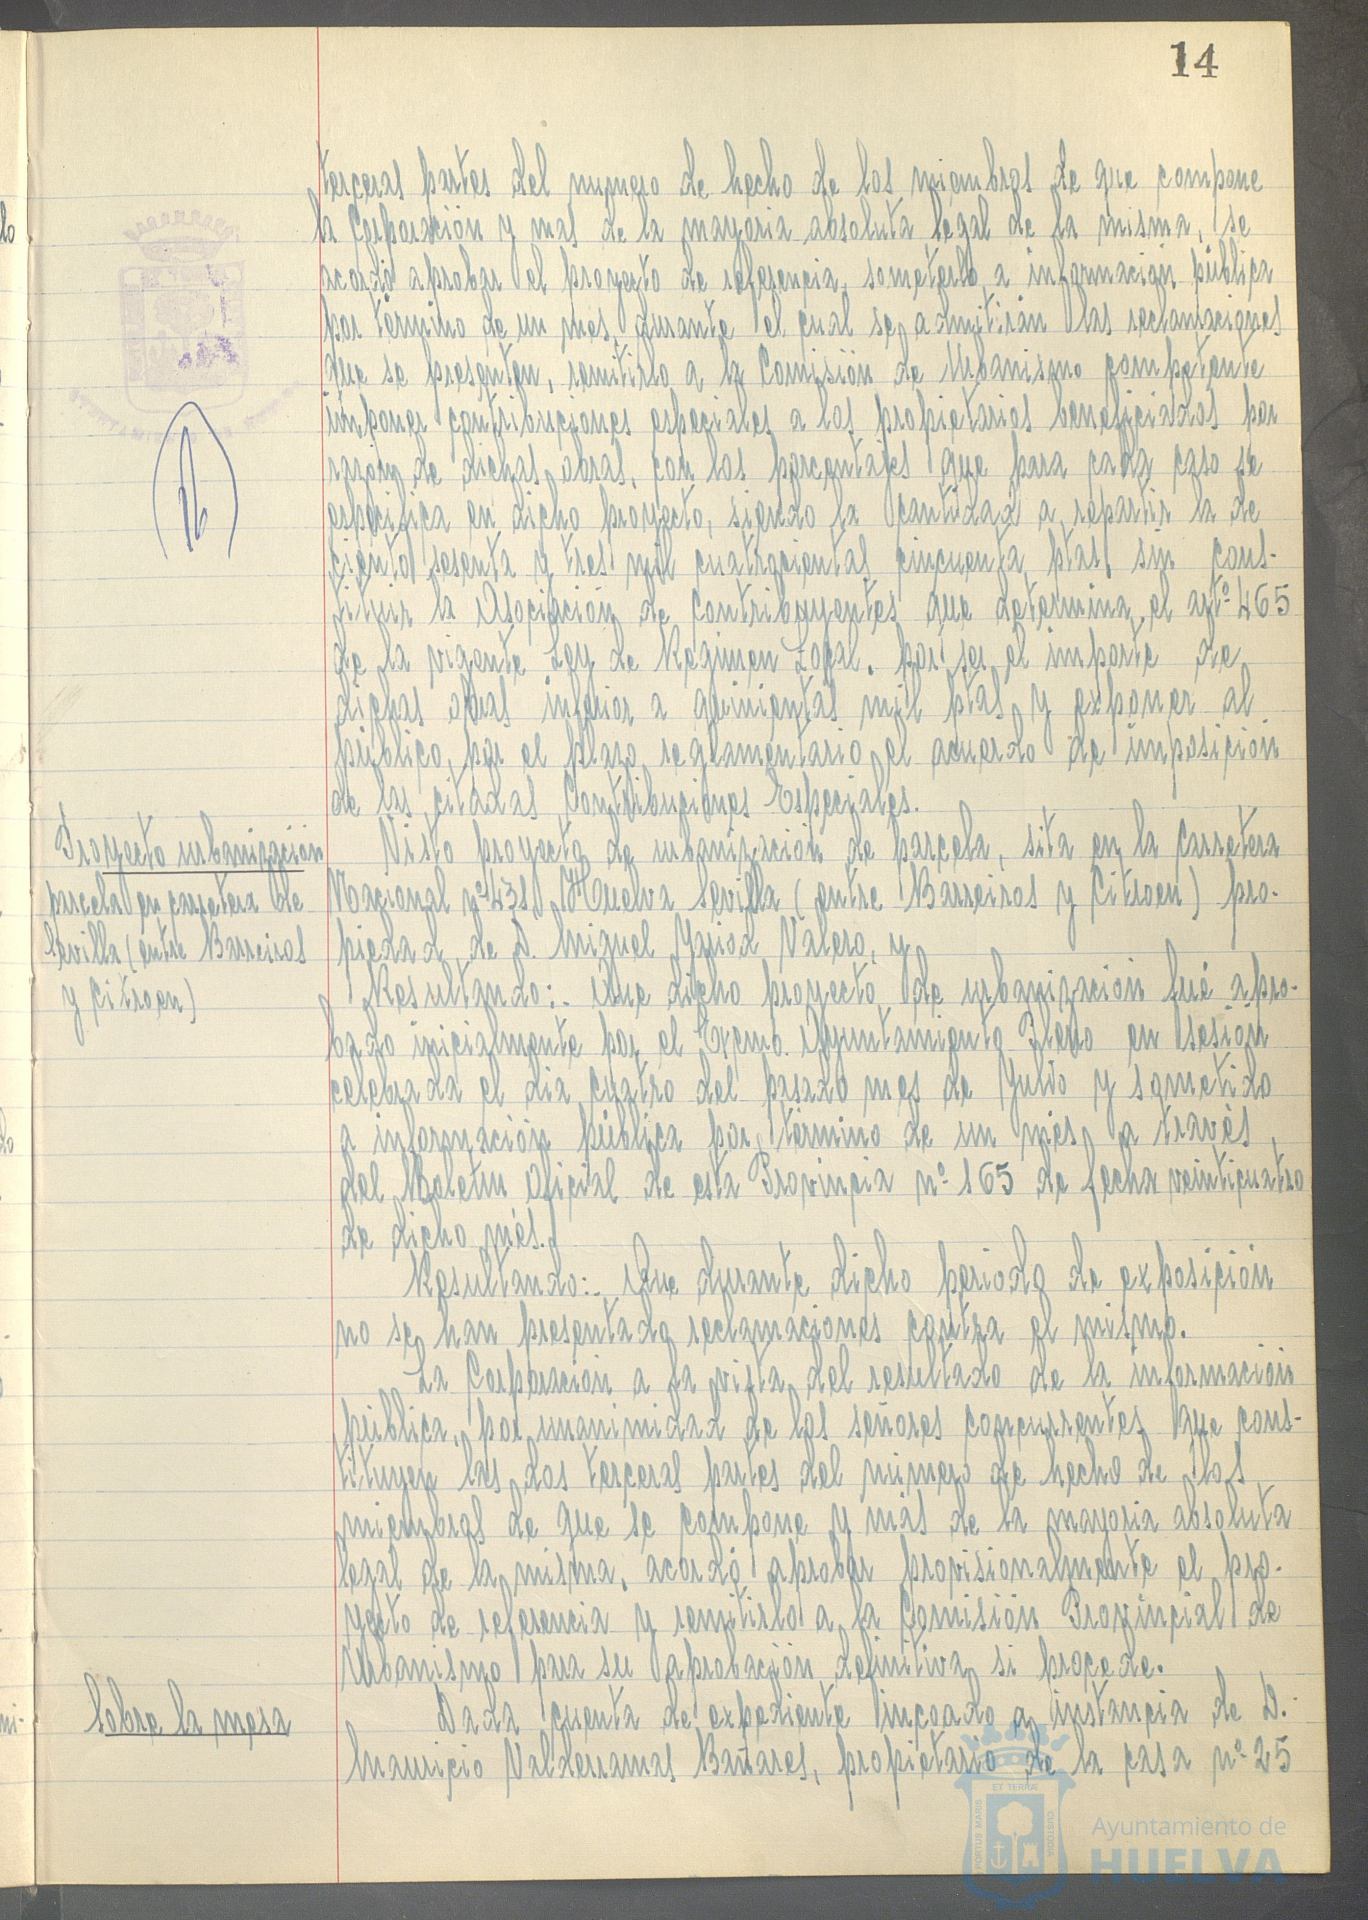 14
terceras partes del numero de hecho de los miembros de que compone
la Corporación y mas de la mayoria absoluta legal de la misma, se
acordó aprobar el proyecto de referencia, someterlo a información pública
por término de un mes, durante el cual se admitirán las reclamaciones
que se presenten, remitirlo a la Comisión de Urbanismo competente
imponer contribuciones especiales a los propietarios beneficiados por
razón de dichas obras, con los porcentajes que para cada caso se
especifica en dicho proyecto, siendo la cantidad a repartir la de
ciento sesenta y tres mil cuatrocientas cincuenta ptas. sin cons-
tituir la Asociación de Contribuyentes que determina el artº 465
de la vigente Ley de Régimen Local. por ser el importe de
dichas obras inferior a quinientas mil ptas y exponer al
público, por el plazo reglamentario el acuerdo de imposición
de las citadas Contribuciones Especiales.
Proyecto urbanización
parcela en carretera de
Sevilla (entre Barreiros
y Citroen)
Visto proyecto de urbanización de parcela, sita en la Carretera
Nacional nº 431 Huelva Sevilla (entre Barreiros y Citroen) pro-
piedad de D. Miguel Valero, y
Resultando:- Que dicho proyecto de urbanización fué apro-
bado inicialmente por el Excmo. Ayuntamiento Pleno en sesión
celebrada el día cuatro del pasado mes de Julio y sometido
a información pública por término de un mes, a través
del Boletin Oficial de esta Provincia nº 165 de fecha veinticuatro
de dicho més.
Resultando:- Que durante dicho periodo de exposición
no se han presentado reclamaciones contra el mismo.
La Corporación a la vista del resultado de la información
pública, por unanimidad de los señores concurrentes que cons-
tituyen las dos terceras partes del número de hecho de los
miembros de que se compone y más de la mayoria absoluta
legal de la misma, acordó aprobar provisionalmente el pro-
yecto de referencia y remitirlo a la Comisión Provincial de
Urbanismo para su aprobación definitiva si procede.
Sobre la mesa
Dada cuenta de expediente incoado a instancia de D.
Mauricio Valderramas Bañares, propietario de la casa nº 25
PORTUS MARIS
ET TERRÆ
CUSTODIA
Ayuntamiento de
HUELVA